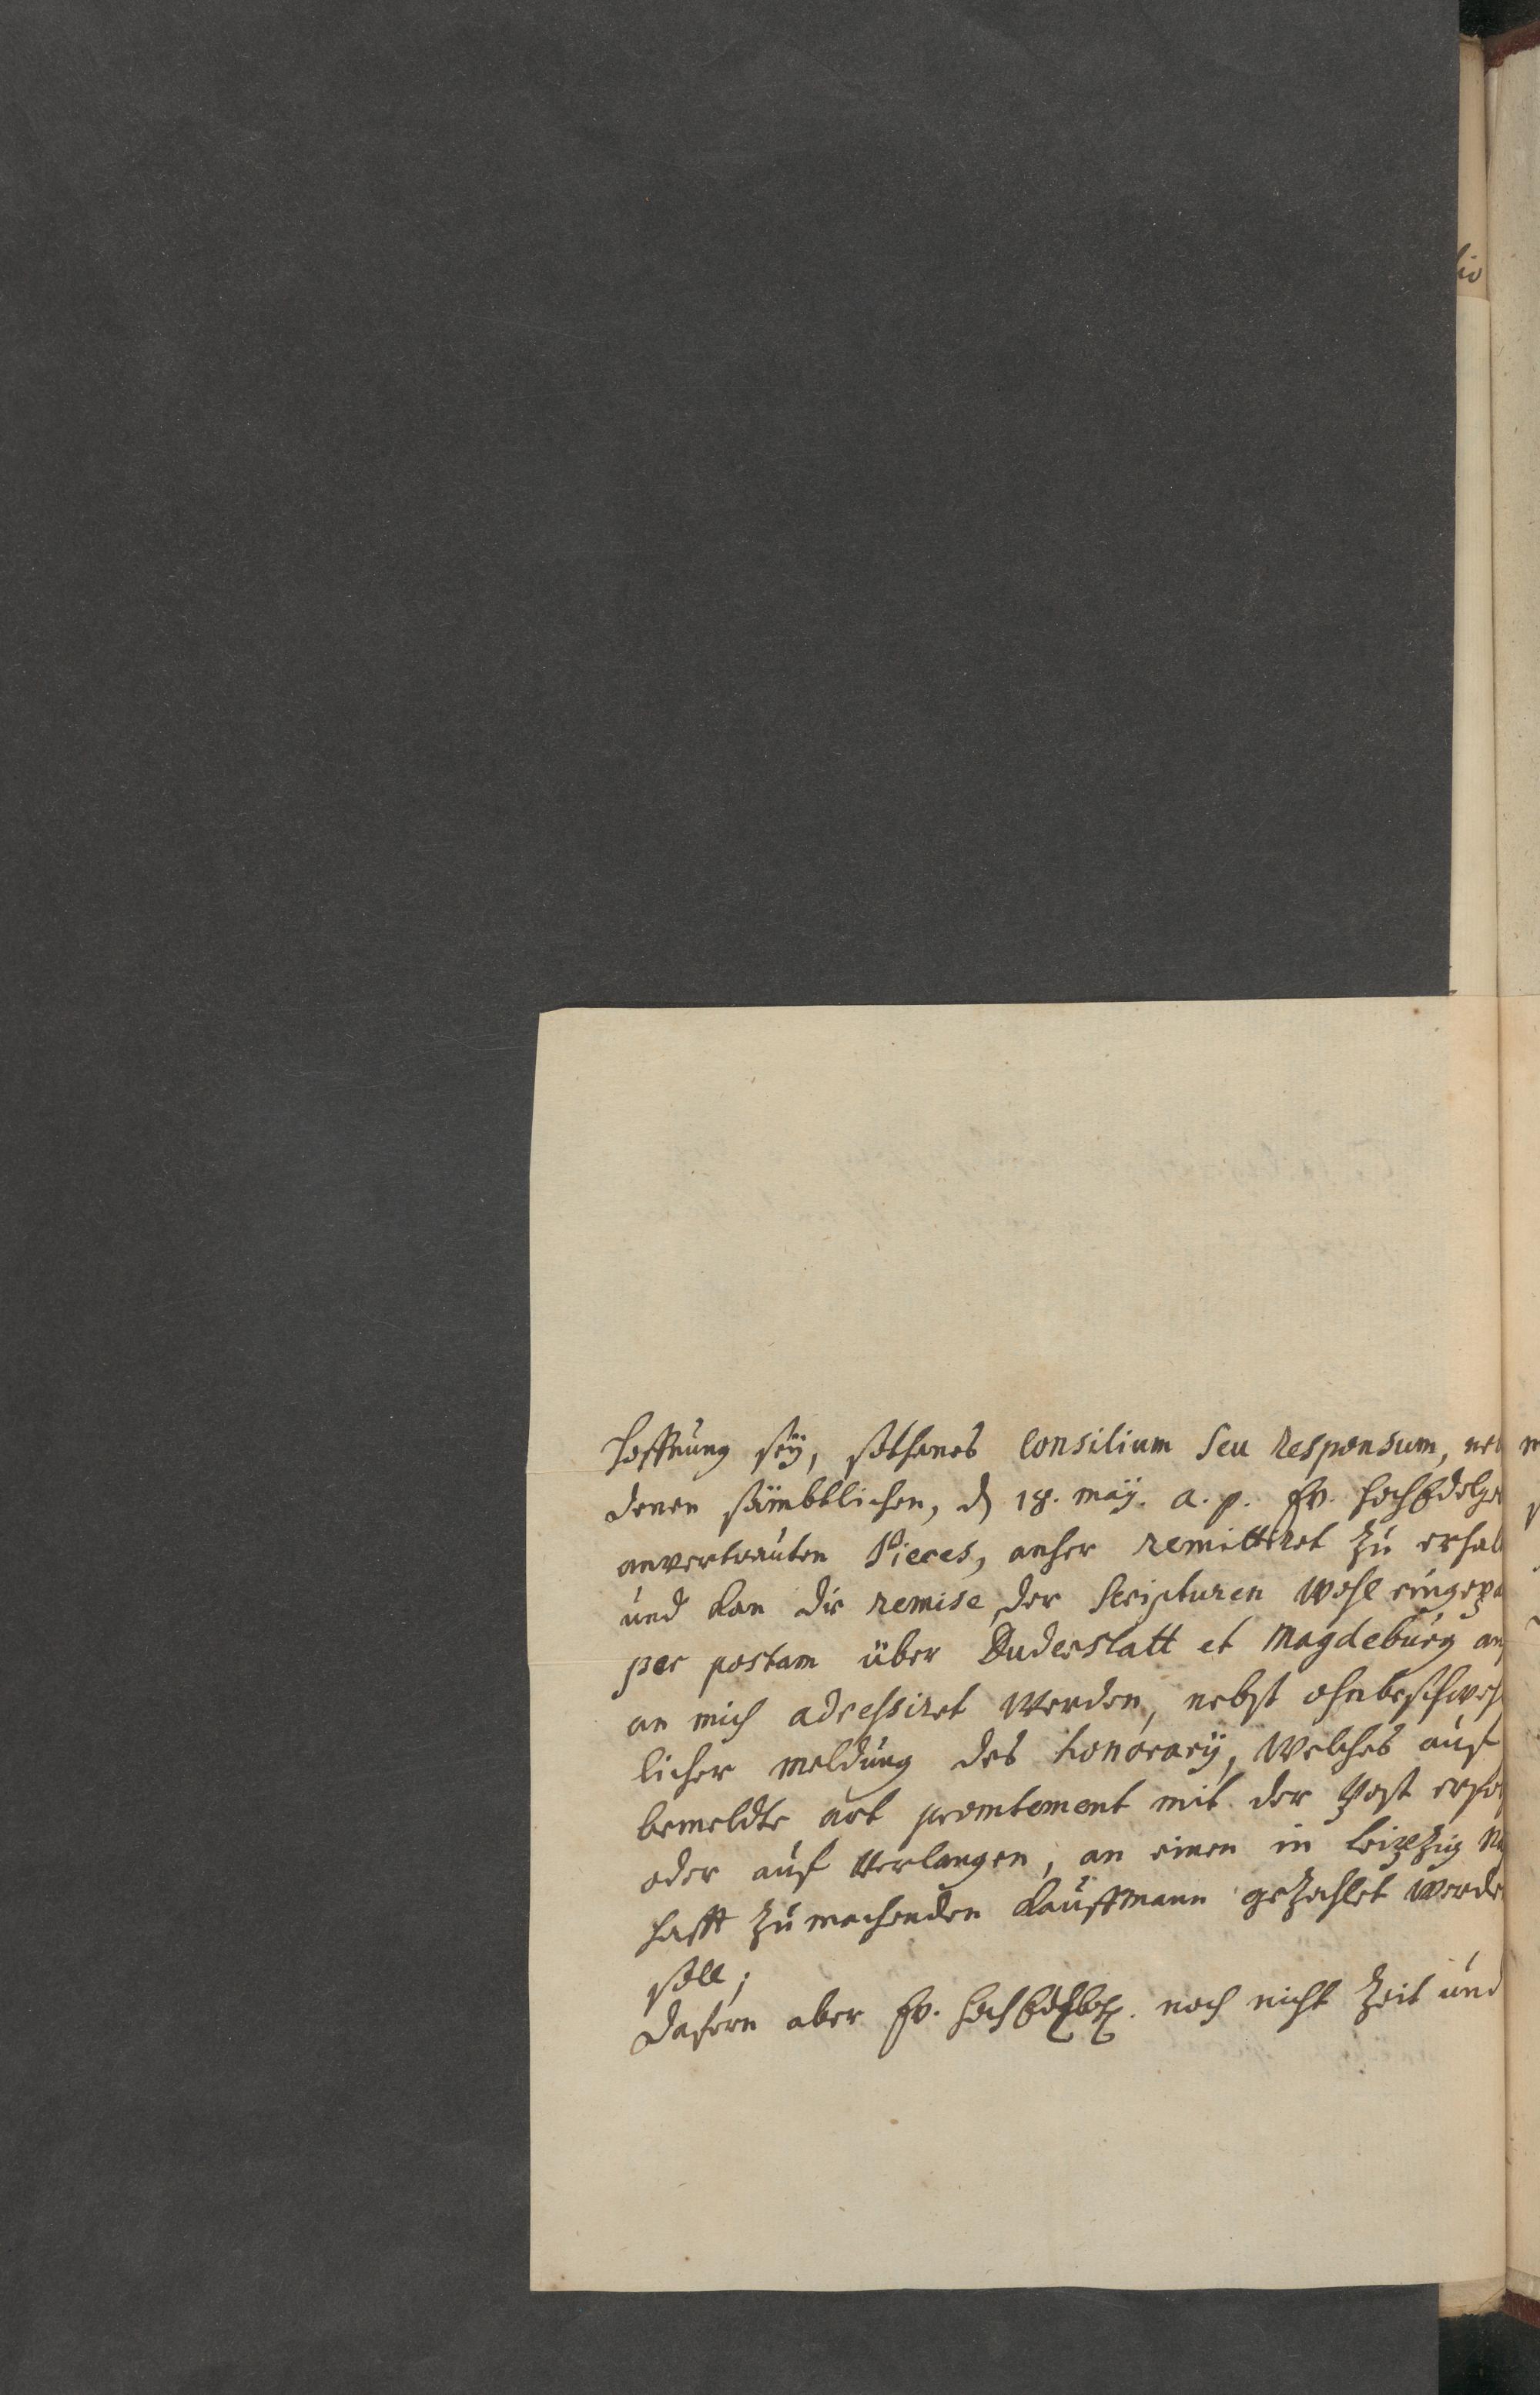 Hoffnung seÿ, sothanes Consilium seu responsum, ne
denen sämbtlichen, d 18. maÿ. a. p. Ew. HochEdelge
anvertrauten Pieces, anher remittiret zu erhal
und kan die remise der Scripturen wohl eingepa
per postam über Duderstatt et Magdeburg an
an mich adressiret werden, nebst ohnbeschweh
licher meldung des honorarÿ, welches auf
bemeldte art promtement mit der Post erfol
oder auf verlangen, an einen in Leipzig na
hafft zumachenden Kauffmann gezahlet werde
soll;
Dafern aber Ew. noch nicht Zeit und